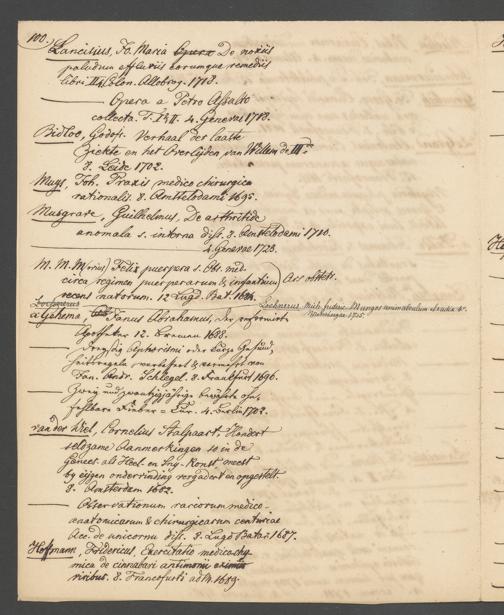 100.
Lancisius, Jo. Maria De noxiis
paludum effluviis eorumque remediis
libri II. 4. Colon. Allobrog. 1718.
— Opera a Petro Assalto
collecta. T. I & II. 4. Genevae 1718.
Bidloo, Godofr. Verhaal der laaste
Ziekte en het Overlijden van Willem de IIIde
8. Leide 1702.
Muys, Joh. Praxis medico chirurgica
rationalis. 8. Amstelodami 1695.
Musgrave, Guilhelmus, De arthritide
anomala s. interna diss. 8. Amstelodami 1710.
— 4. Genevae 1723.
M. M. M(orius) Felix puerpera s. Obs. med.
circa regimen puerperarum & infantium Ars obstetr.
recens natorum. 12. Lugd. Bat. 1684.
Lochnerus Lochnerus, Mich. Frideric. Mungos animalculum & radix 4o.
Norimbergae 1715.
a Gehema, Janus Abrahamus, Der reformirte
Apotheker 12. Bremen 1688.
— Dreyssig Aphorismi oder kurze Gesund-
heitsregeln vertheset & vermehrt von
Joh. Andr. Schlegel. 8. Frankfurt 1696.
— Zwey und zwantzigjährige bewährte ohn-
fehlbare Fieber = Cur. 4. Berlin 1702.
van der Wiel, Cornelius Stalpaart, Hondert
seldzame Aanmerkingen so in de
Genees- als Heel- en Sny-Konst meest
by eijgen ondervinding vergadert en opgestelt.
8. Amsterdam 1682.
— Observationum rariorum medico-
anatomicarum & chirurgicarum centuriae
Acc. de unicornu diss. 8. Lugd. Batav. 1687.
Hoffmann, Fridericus, Exercitatio medico-chy-
mica de cinnabari antimonii eximiis
viribus. 8. Francofurti ad M. 1689.